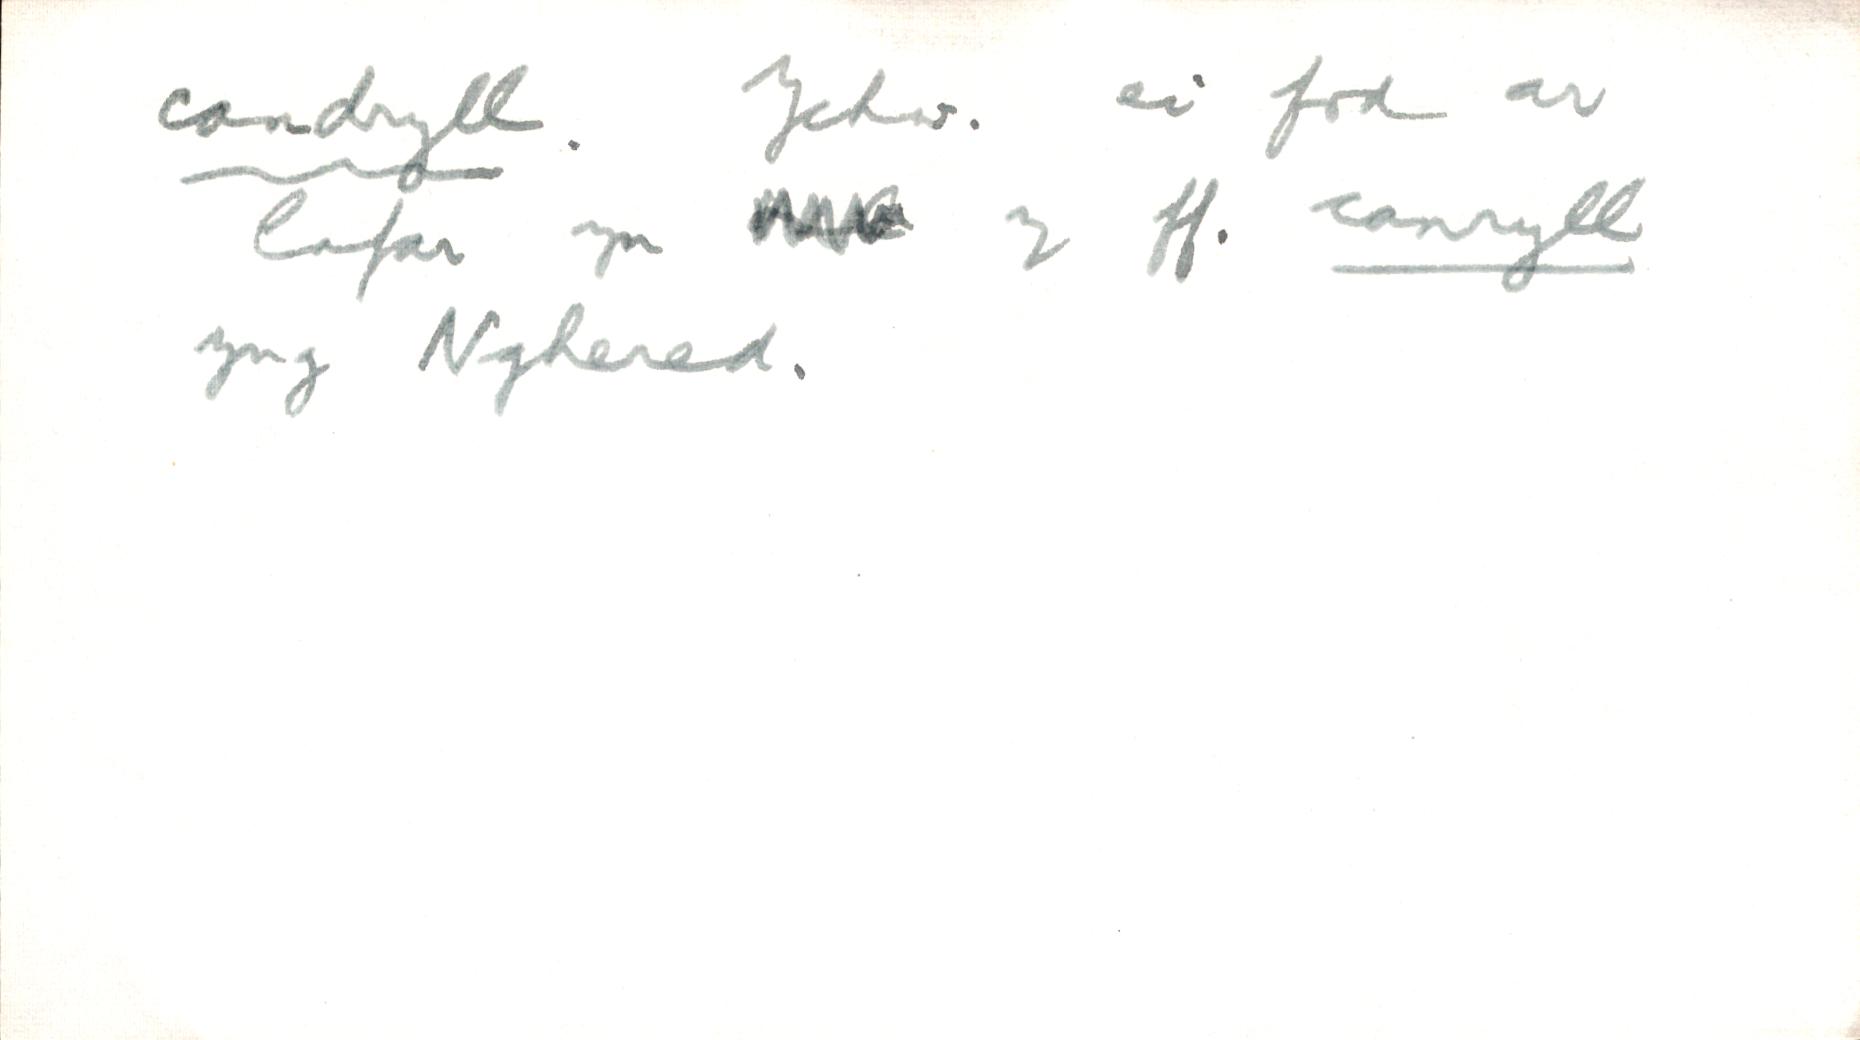 candryll. Ychw. ei fod ar
lafar yn y ff. canryll
yng Nghered.